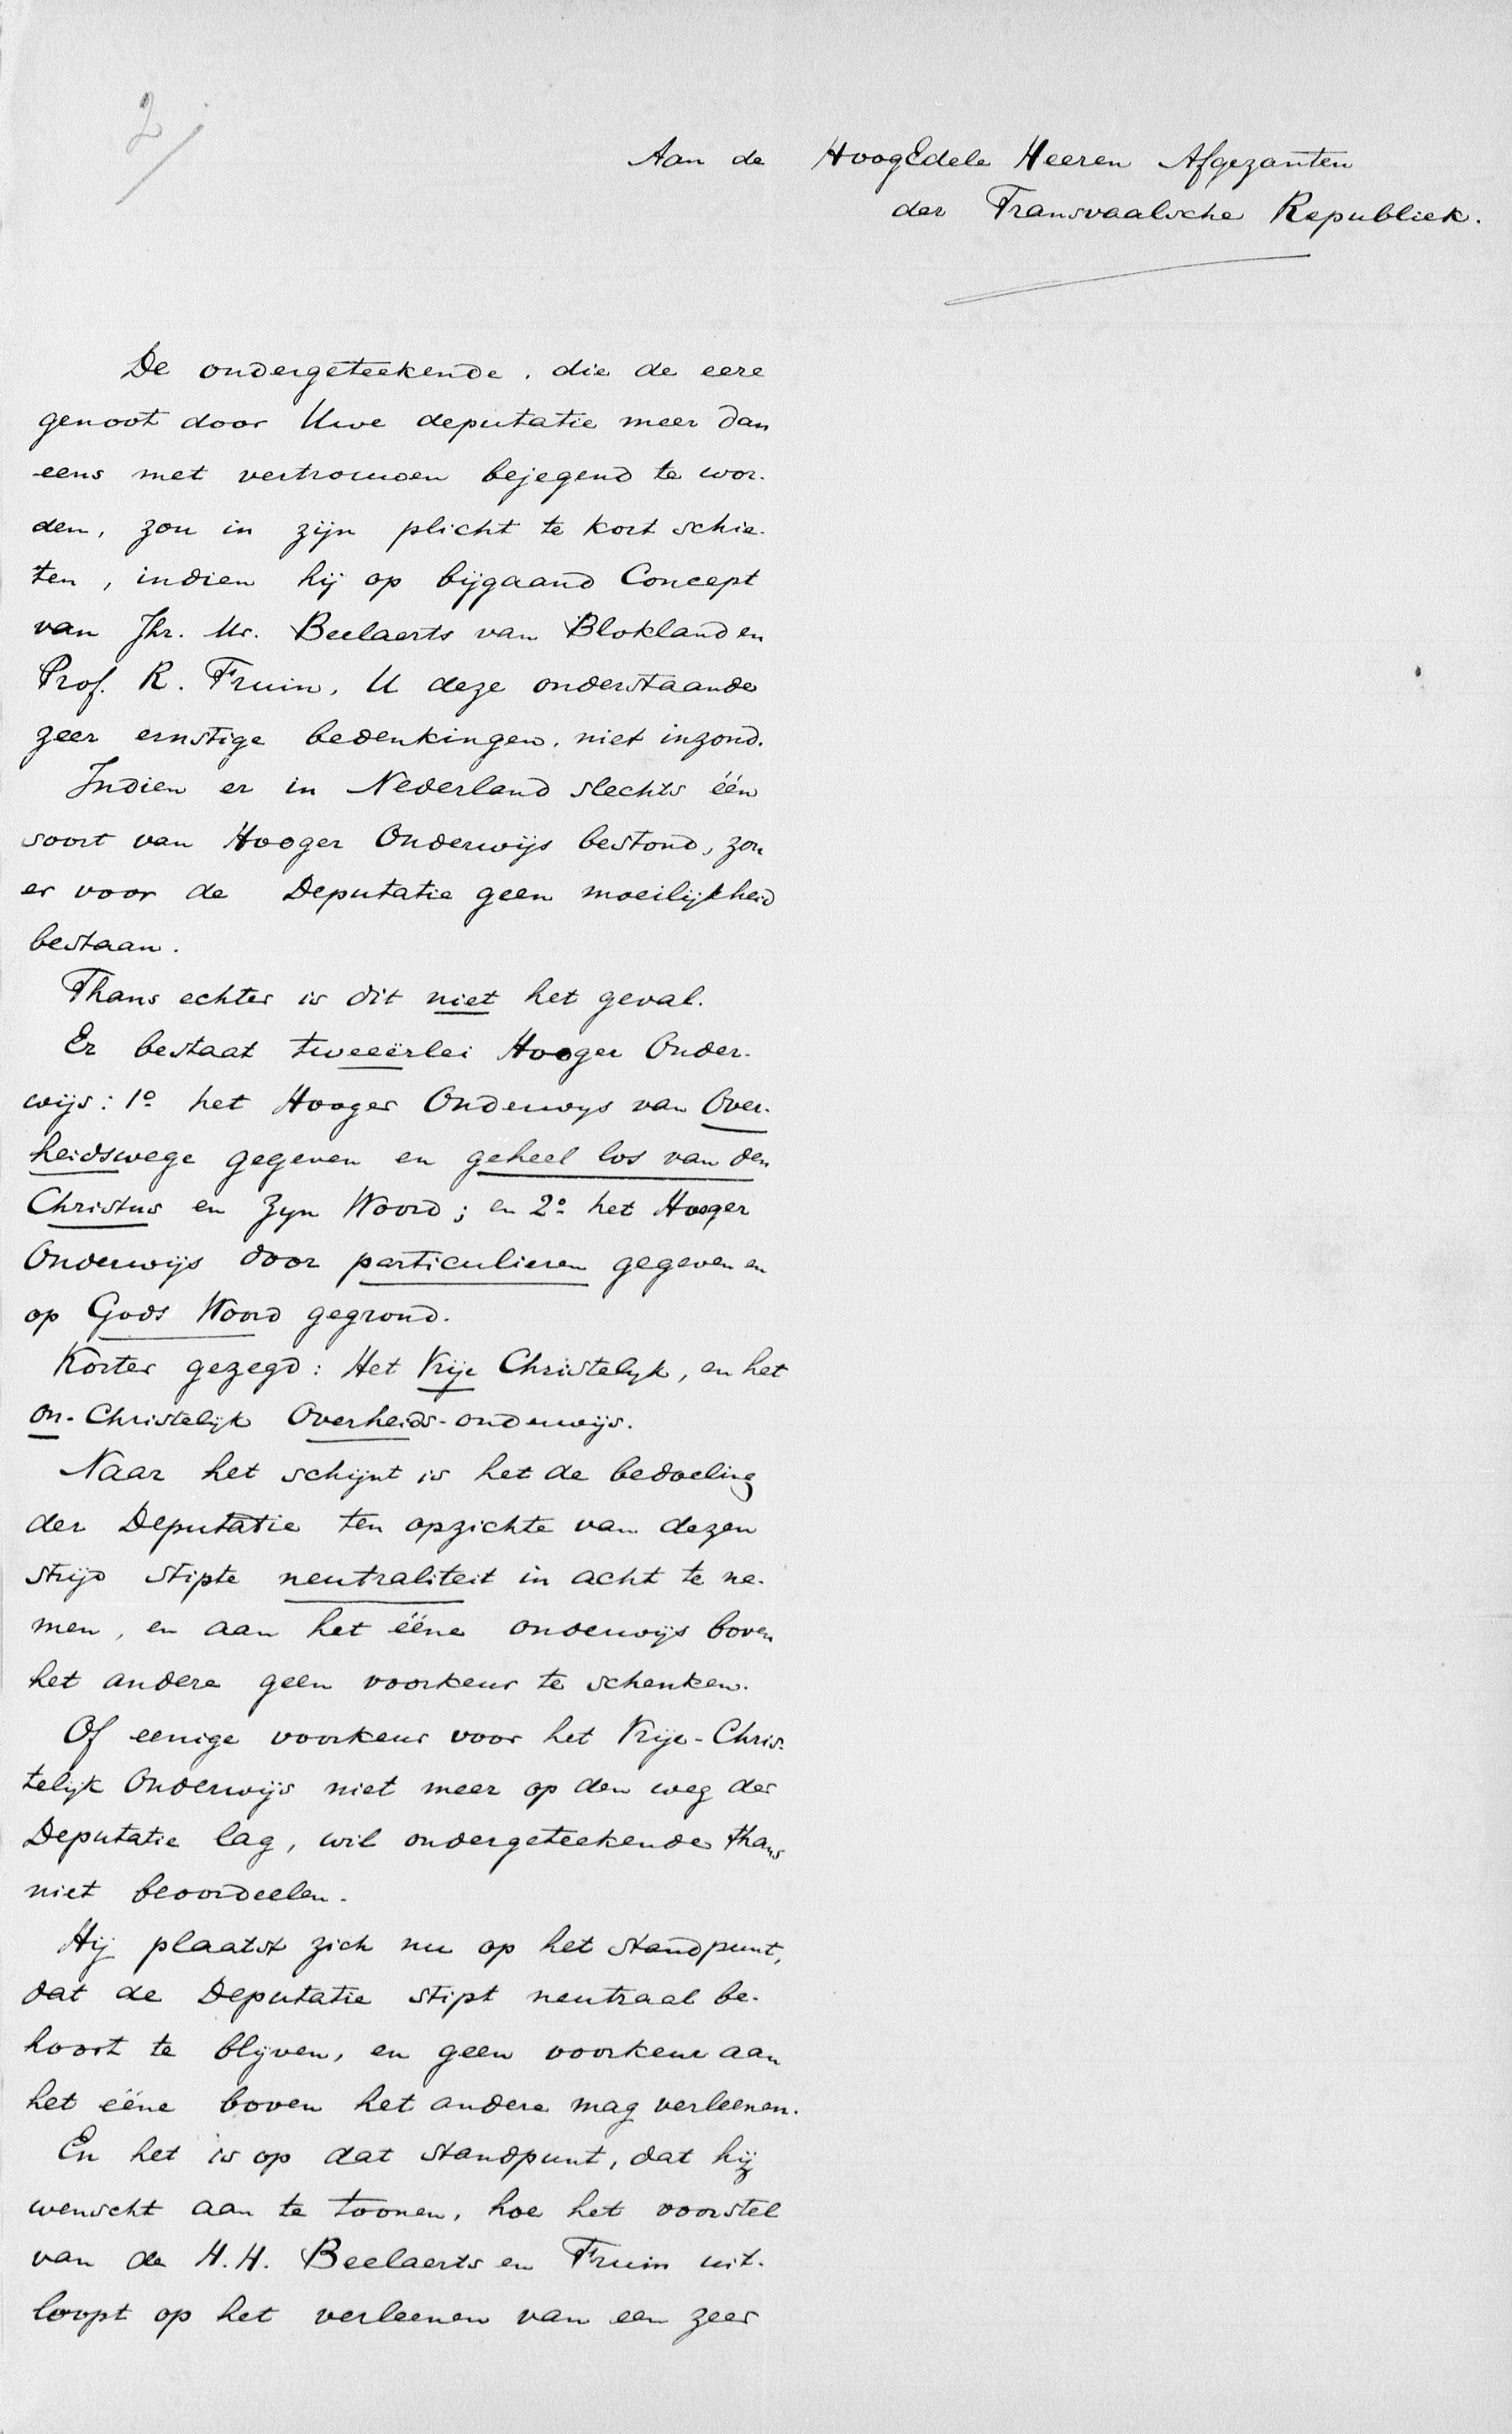 2/
Aan de HoogEdele Heeren Afgezanten
der Transvaalsche Republiek.
De ondergeteekende, die de eere
genoot door Uwe deputatie meer dan
eens met vertrouwen bejegend te wor-
den, zou in zijn plicht te kort schie-
ten, indien hij op bijgaand Concept
van Jhr. Mr. Beelaerts van Blokland en
Prof. R. Fruin, U deze onderstaande
zeer ernstige bedenkingen, niet inzond.
Indien er in Nederland slechts één
soort van Hooger Onderwijs bestond, zou
er voor de Deputatie geen moeilijkheid
bestaan.
Thans echter is dit niet het geval.
Er bestaat tweeërlei Hooger Onder-
wijs: 1º het Hooger Onderwys van Over-
heidswege gegeven en geheel los van den
Christus en Zyn Woord; en 2º het Hooger
Onderwijs door particulieren gegeven en
op Gods Woord gegrond.
Korter gezegd: Het Vrije Christelyk, en het
on-Christelijk Overheids-onderwijs.
Naar het schijnt is het de bedoeling
der Deputatie ten opzichte van dezen
strijd stipte neutraliteit in acht te ne-
men, en aan het ééne onderwijs boven
het andere geen voorkeur te schenken.
Of eenige voorkeur voor het Vrije-Chris-
telijk Onderwijs niet meer op den weg der
Deputatie lag, wil ondergeteekende thans
niet beoordeelen.
Hij plaatst zich nu op het standpunt,
dat de Deputatie stipt neutraal be-
hoort te blijven, en geen voorkeur aan
het ééne boven het andere mag verleenen.
En het is op dat standpunt, dat hij
wenscht aan te toonen, hoe het voorstel
van de H.H. Beelaerts en Fruin uit-
loopt op het verleenen van een zeer